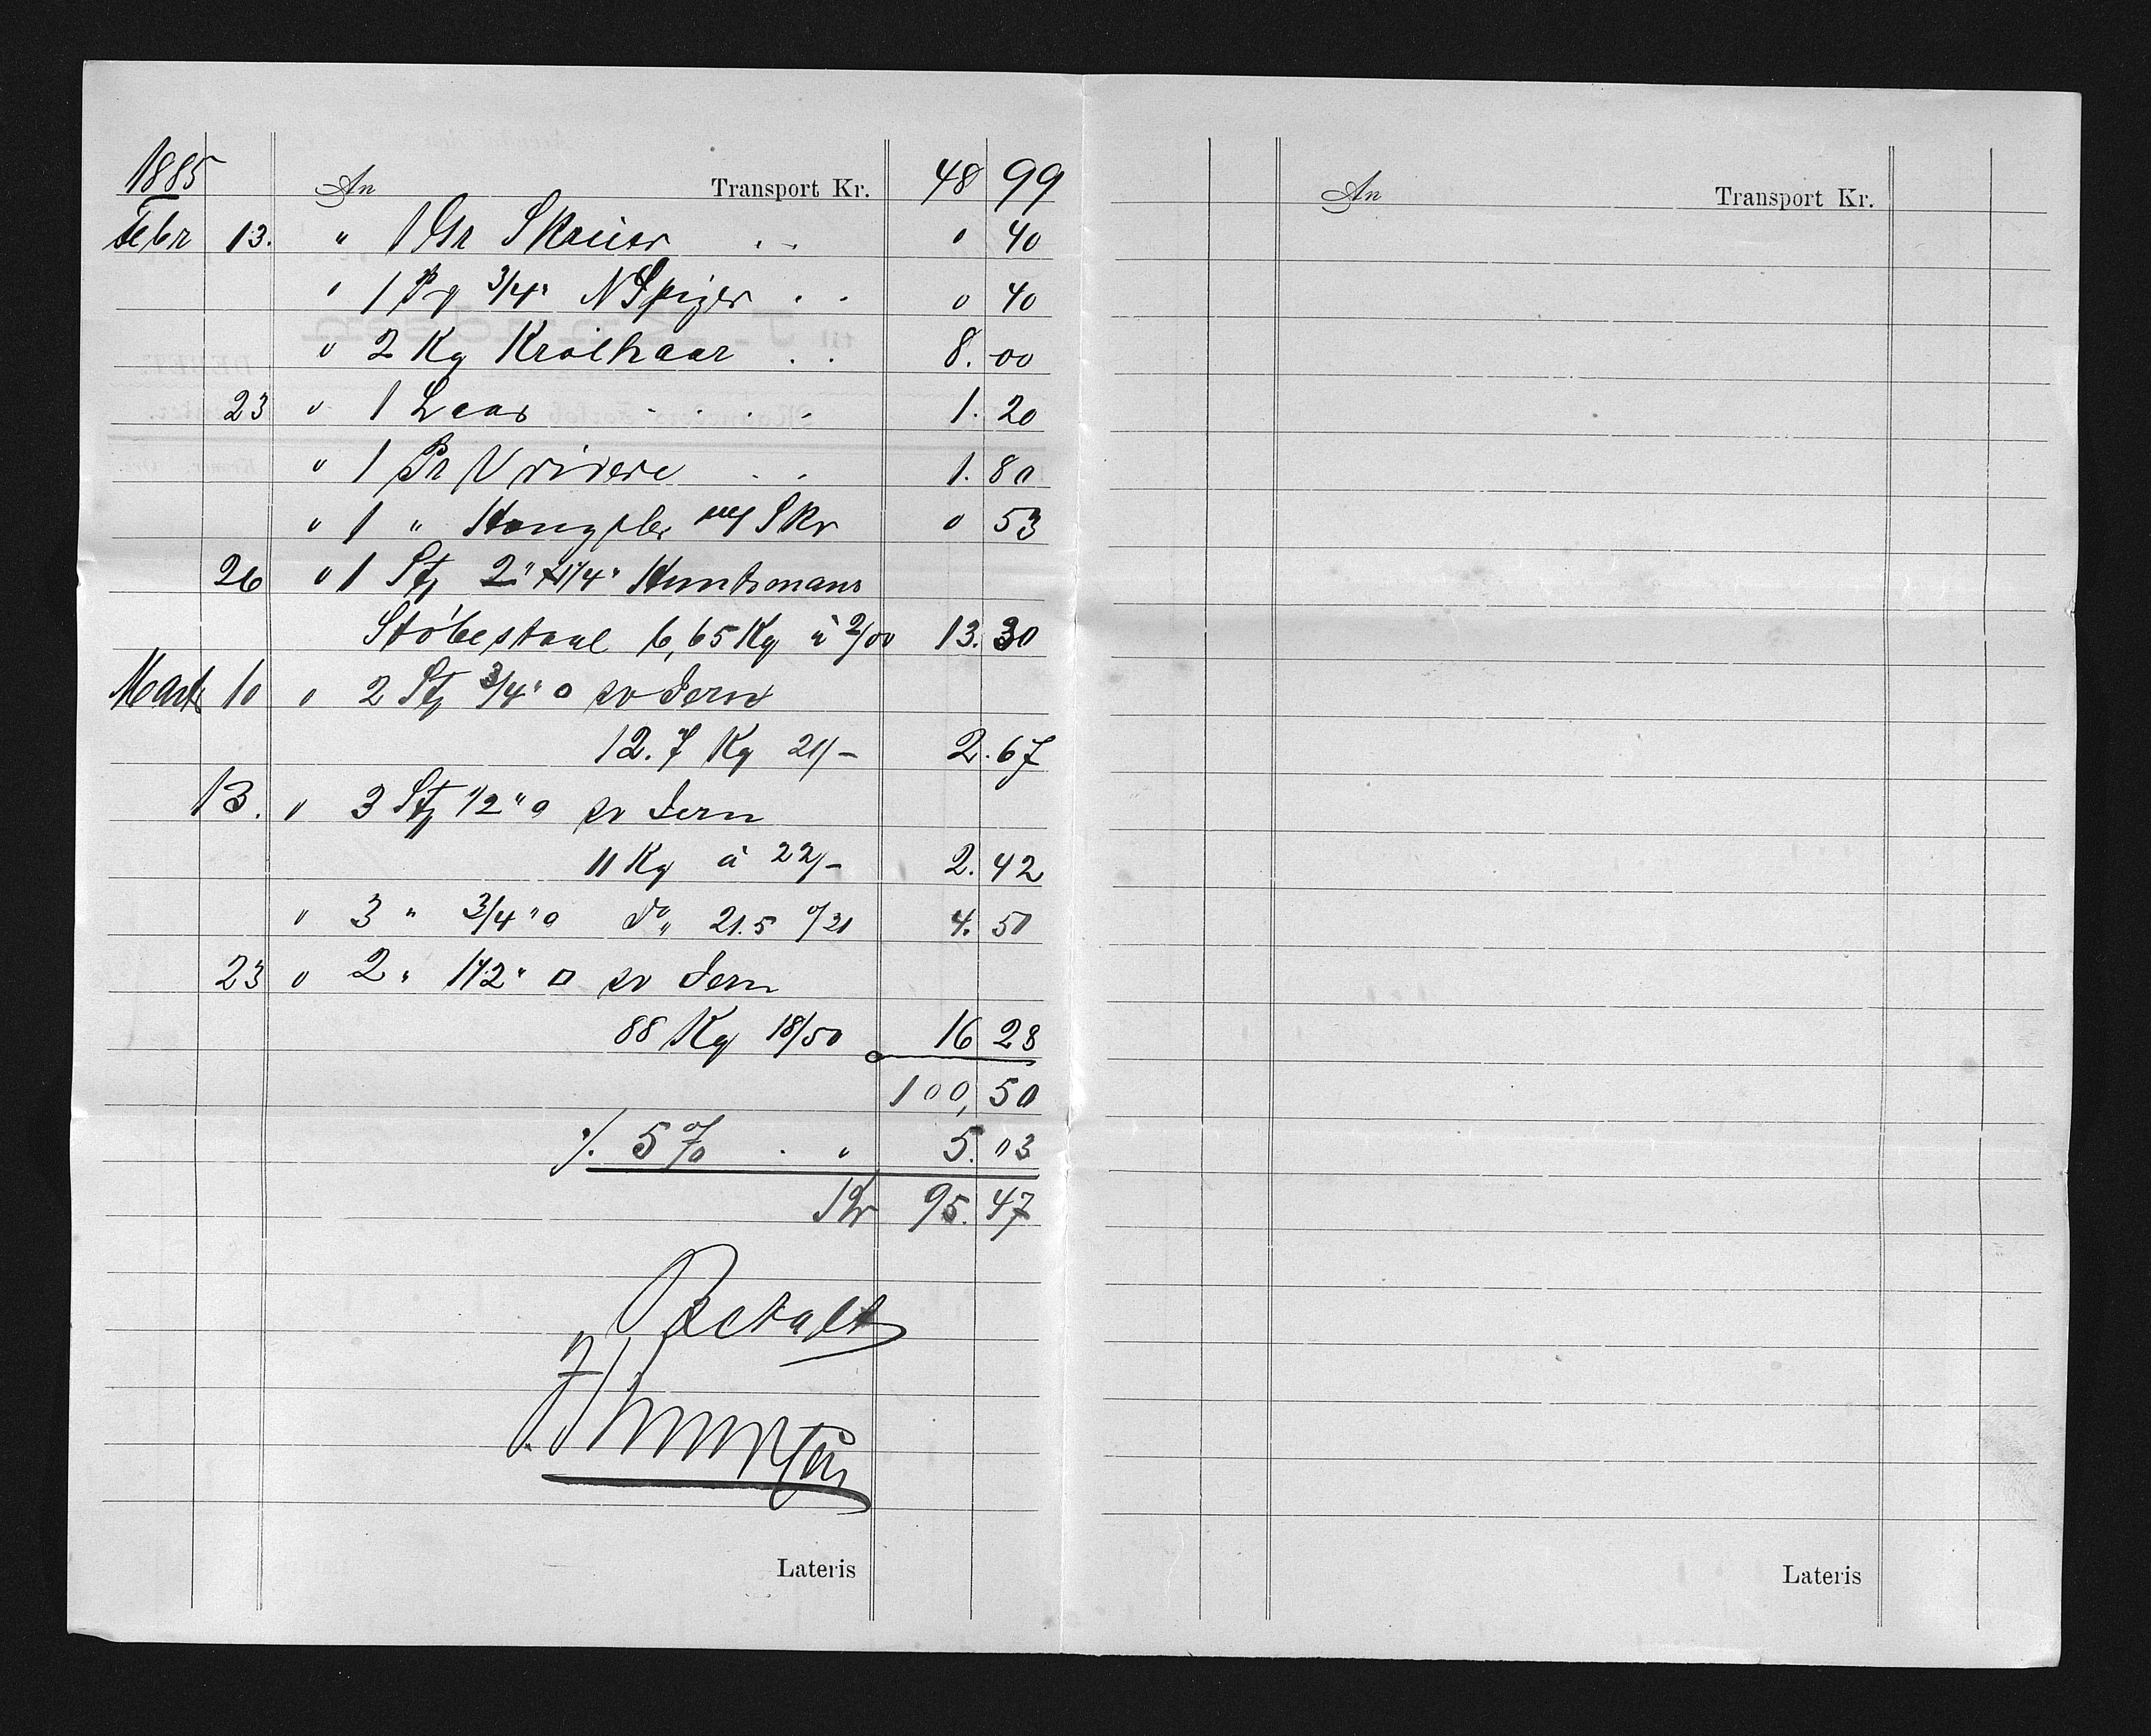 1885 An Transport Kr. 48 99
Febr 13. " 1 Gr Skruer . . " 40
" 1 Pg 3/4" N Spiger . . " 40
" 2 Kg Krølhaar . . 8. 00
23 " 1 Laas . . . . 1. 20
" 1 Pr Vridere . . 1. 80
" 1 " Hængsler m/ Skr " 53
26 " 1 St 2" x 1/4" Huntsmans
Støbestaal 6,65 Kg à 2/00 13. 30
Marts 10 " 2 St 3/4" o sv Jern
12.7 Kg 21/- 2. 67
13. " 3 St 1/2" o sv Jern
11 Kg à 22/- 2. 42
" 3 " 3/4" o do 21.5 a/21 4. 51
23 " 2 " 1 1/2" □ sv Jern
88 Kg 18/50 16 28
100, 50
./. 5 % . " 5. 03
Kr 95. 47
Betalt
Lateris
An Transport Kr.
Lateris